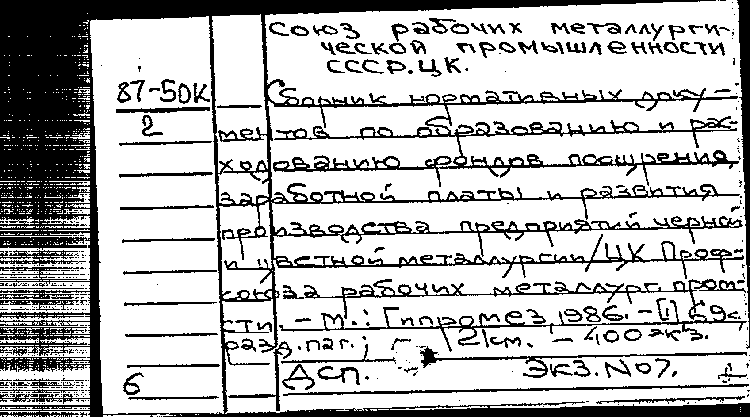 Союз рабочих металлурги-
ческой промышленности
СССР. ЦК.
87-50К
Сборник нормативных доку-
2
ментов по образованию и рас-
ходованию фондов поощрения,
заработной платы и развития
производства предприятий черной
и цветной металлургии/ЦК Проф-
союза рабочих металлург. пром-
сти. – М.: Гипромез, 1986. – [1] 69с.
разд. паг.; 21см. – 400экз.
Дсп. Экз. №07.
6